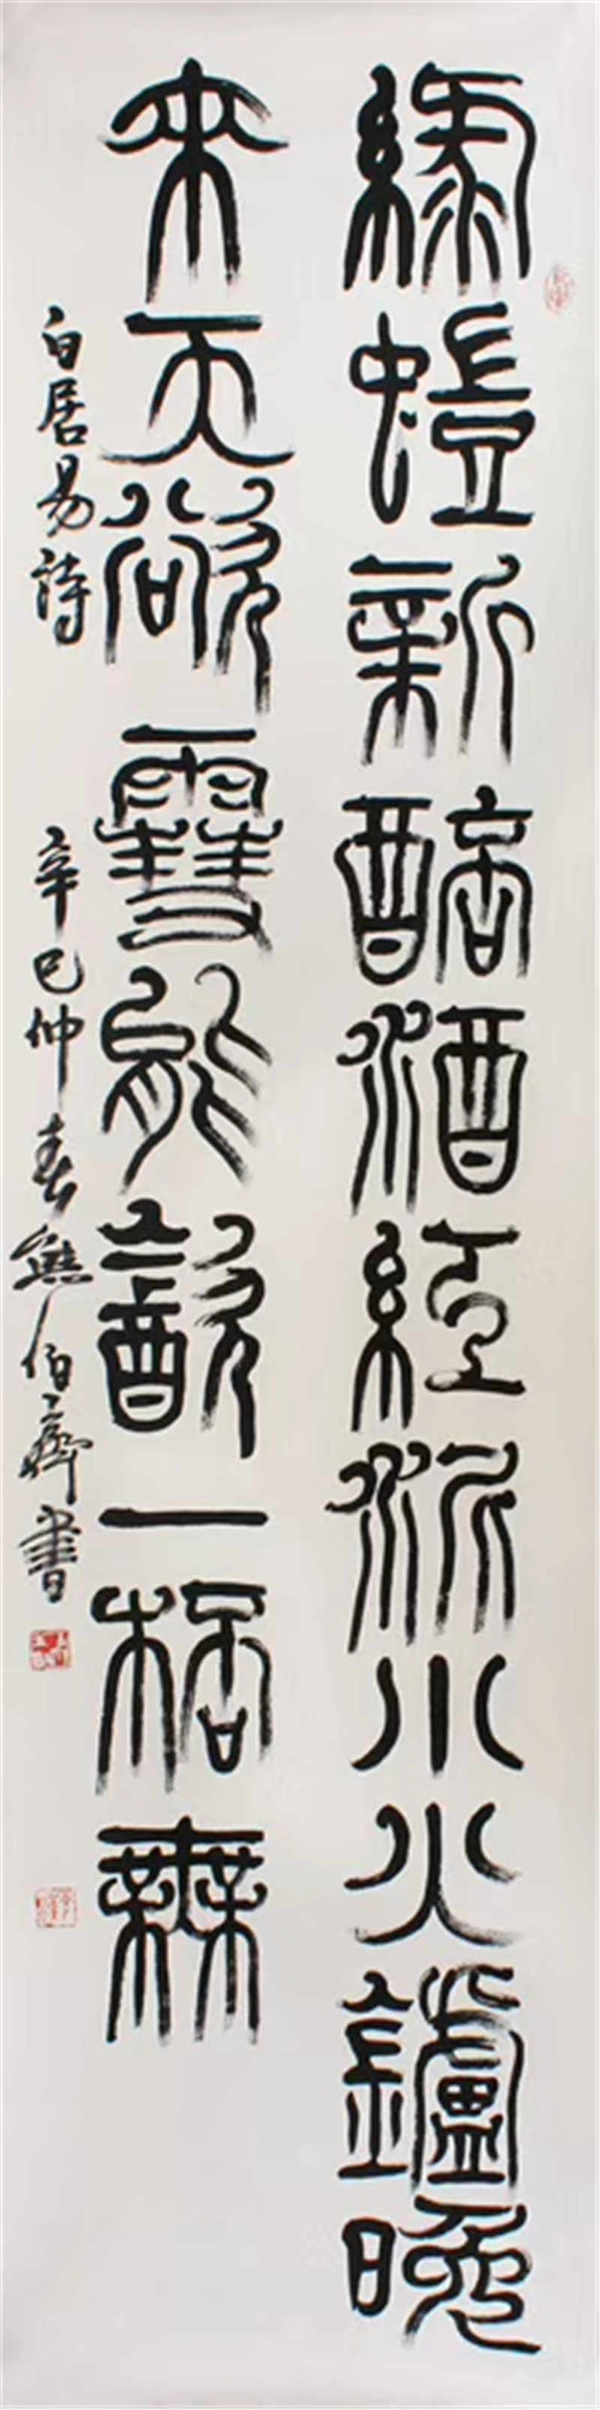 綠螘新醅酒紅泥小火鑪晚
來天欲雪能㱃一桮無
白居易詩 辛巳仲春熊伯齊書